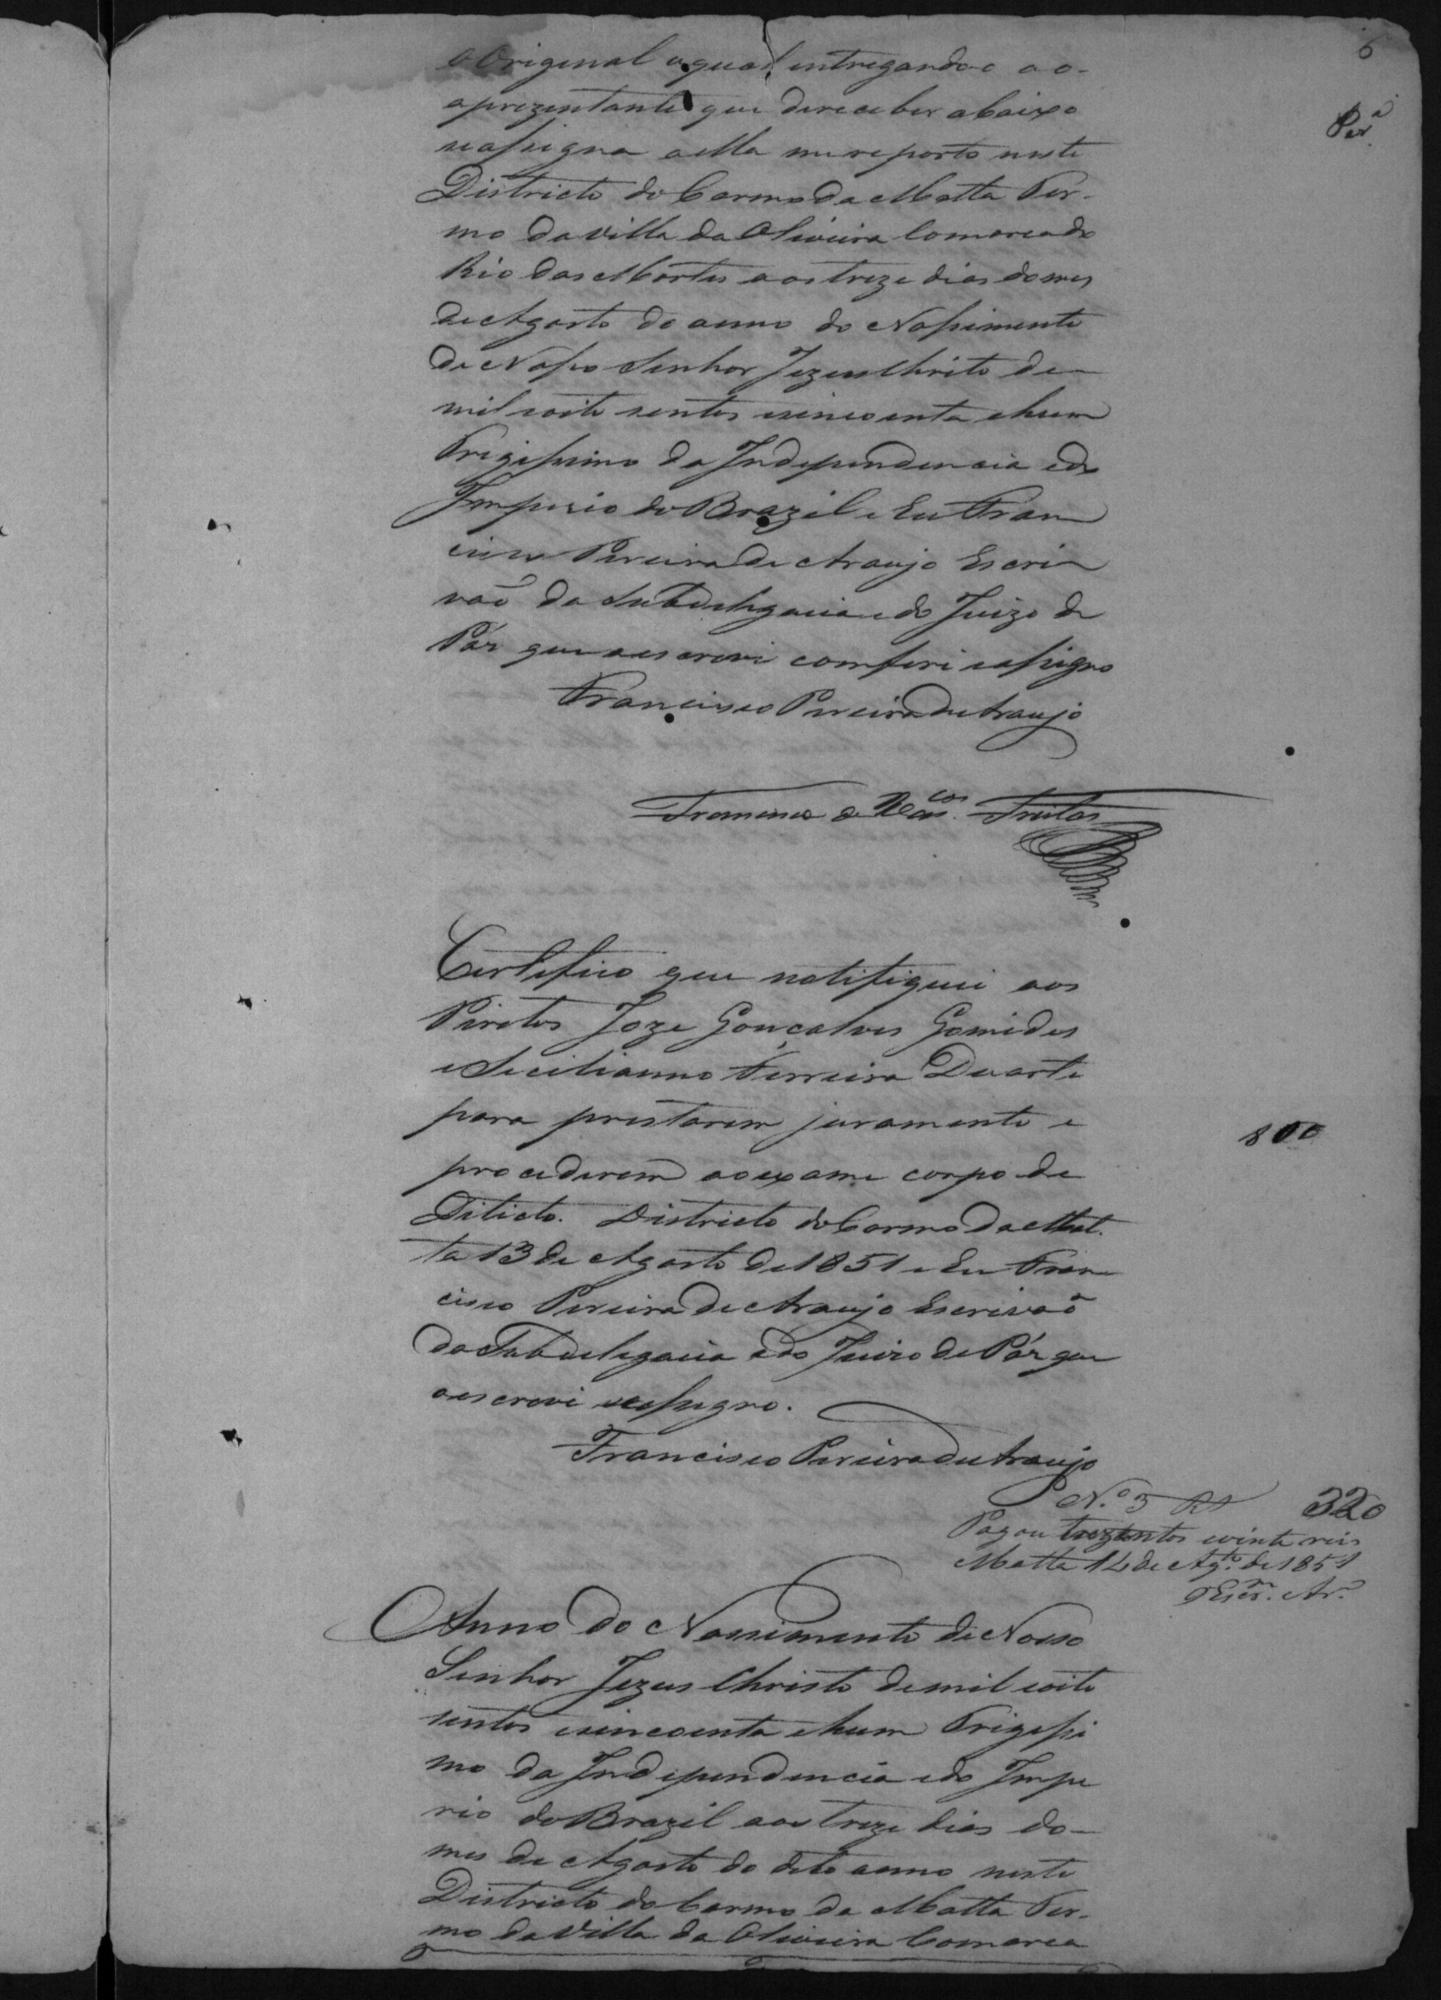 6
Per.ª
o Original o qual entregando-o ao-
aprezentante que de receber abaixo
se assigna a ella me reporto neste
Districto do Carmo da Matta Ter-
mo da Villa da Oliveira Comarca do
Rio das Mortes aos treze dias do mes
de Agosto do anno do Nassimento
de Nosso Senhor Jezus Christo de
mil oito sentos e sincoenta e hum
Trigessimo da Independencia e do
Imperio do Brazil e Eu Fran
cisco Pereira de Araujo Escri
vaõ da Subdelegacia e do Juizo de
Páz que a escrevi comferi e assigno
Francisco Pereira de Araujo
Francisco de Freitas
Certefico que notifiquei aos
Piritos Joze Gonçalves Gomides
e Sicilianno Ferreira Duarte
para prestarem juramento e
procederem ao exame corpo de
Dilicto. Districto do Carmo da Mat.
ta 13 de Agosto de 1851 e Eu Fran
cisco Pereira de Araujo Escrivaõ
da Subdelegacia e do Juizo de Páz que
a escrevi e assigno.
800
Francisco Pereira de Araujo
N.º 5 Rs 320
Pagou trezentos e vinte reis
Matta 14 de Ag.to de 1851
O Escr.m Ar.º
Anno do Nassimento de Nosso
Senhor Jezus Christo de mil e oito
sentos e sincoenta e hum Trigessi
mo da Independencia e do Impe
rio do Brazil aos treze dias do-
mes de Agosto do dito anno neste
Districto do Carmo da Matta Ter-
mo da Villa da Oliveira Comarca